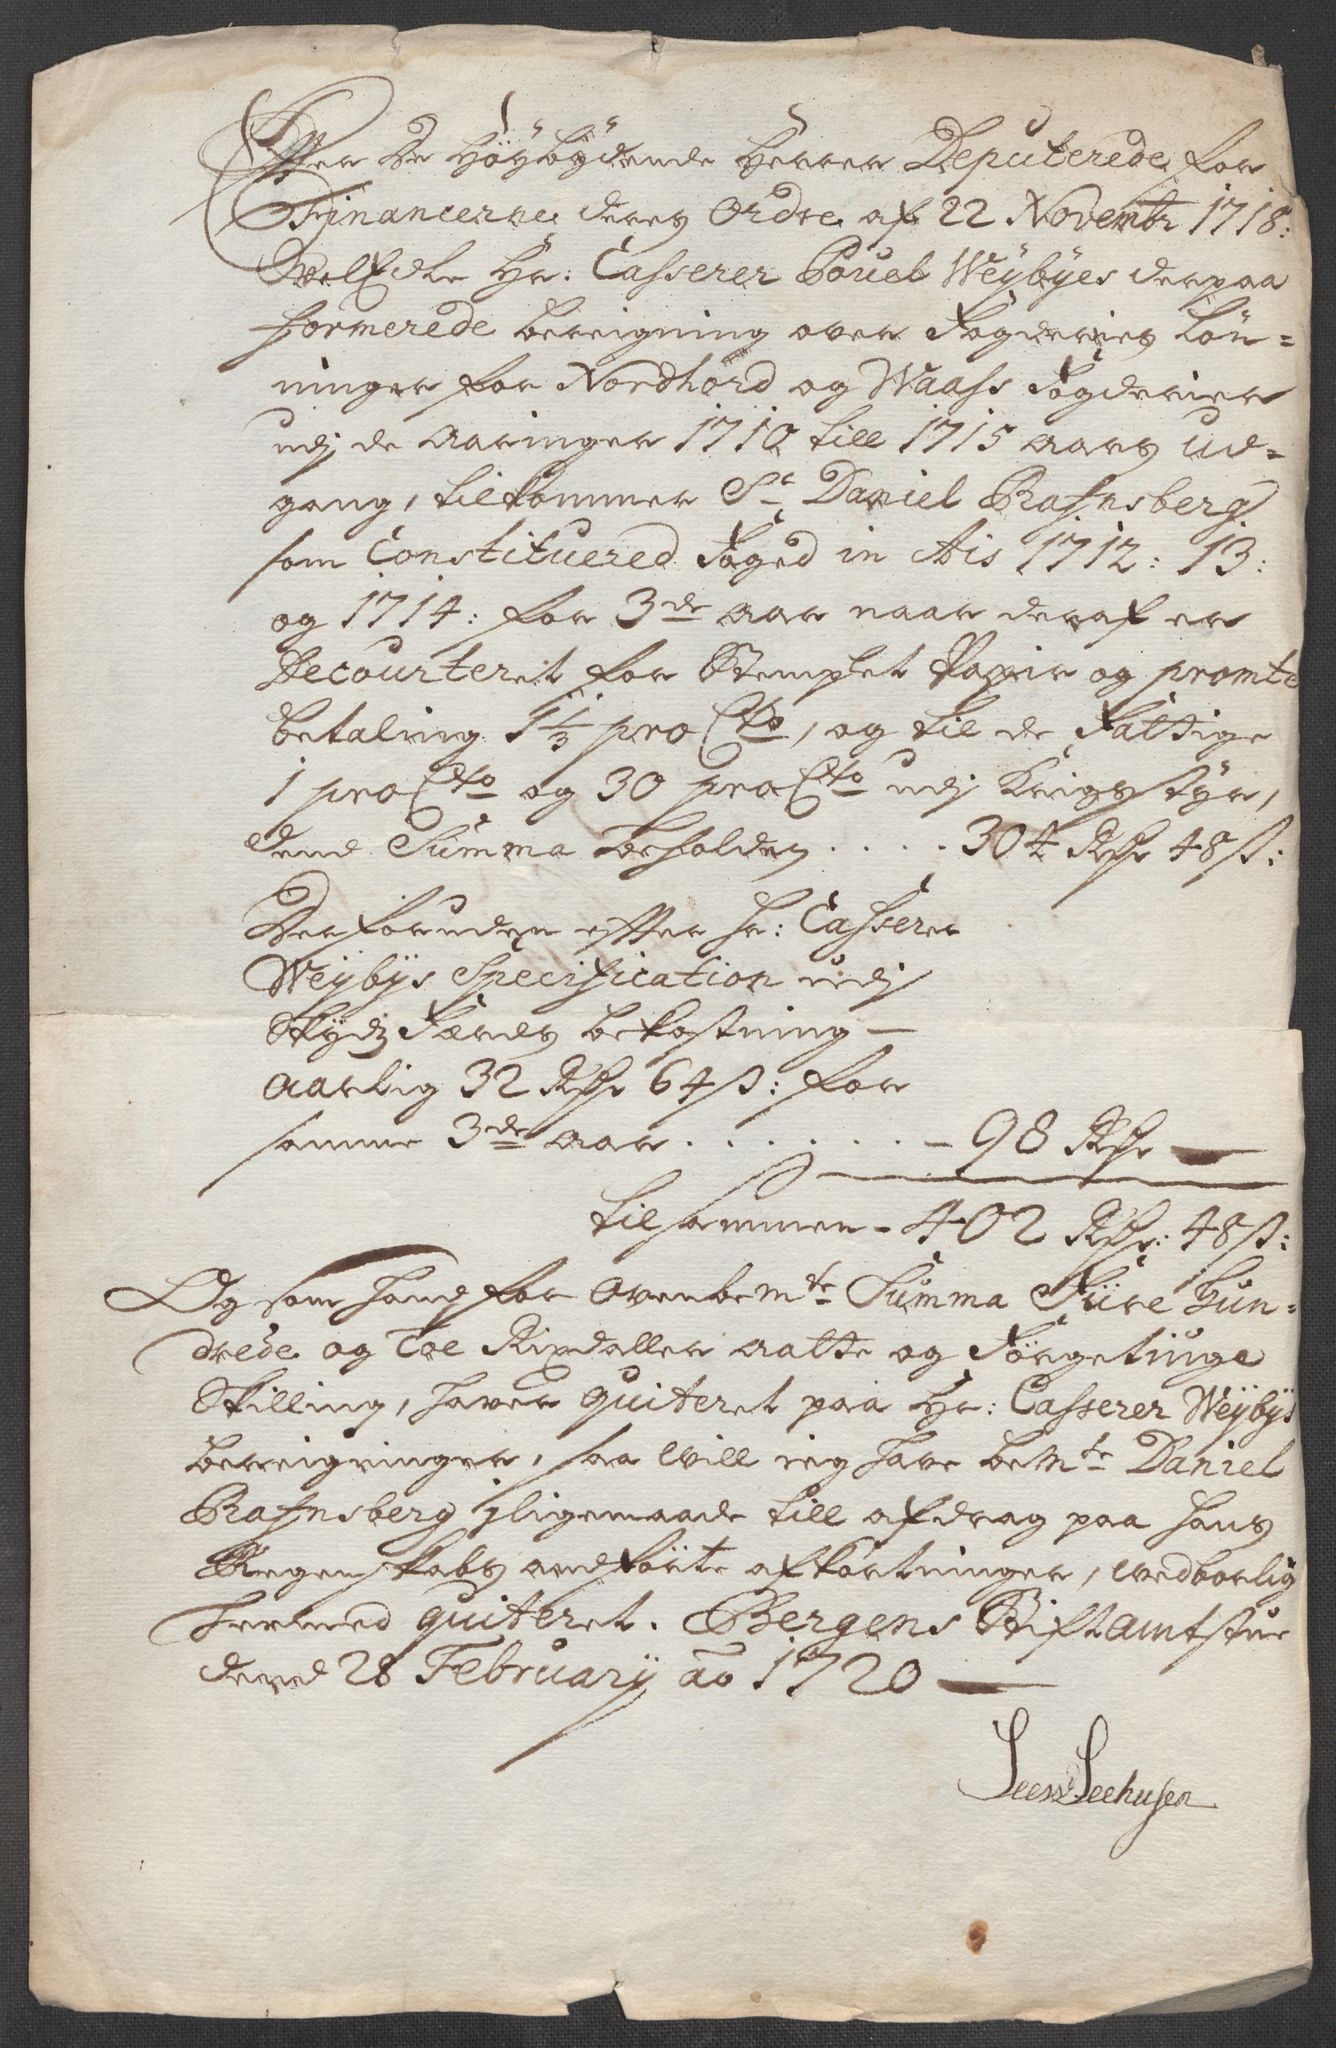 Efter De Höybydende Herrer Deputerede for
Financerne deres Ordre af 22 Novembr 1718:
Velædle Hr: Casserer Povel Weybyes derpaa
formerede bereigning over Fogderies Löń=
ninger for Nordhörd og Waass Fogderier
udj de Aaringer 1710 till 1715 aars ud=
gang, tilkommer Sr Daniel Rafnsberg
som Constituered Foged in Aɨs 1712: 13:
og 1714: for 3de aar naar deraf er
Decourteret for Stemplet Papir og promte
betaling 1 1/3 pro Cto, og til de Fattige
1 pro Cto og 30 pro Cto udj Krigs styr,
dend Summa beholden . . . . 304 Rdr 48 s:
Derforuden efter Hr: Casserer
Weybys Specification udj
Skyds Færds bekostning —
Aarlig 32 Rdr 64 s: for
samme 3de aar . . . . . . . — 98 Rdr —
tilsammen - 402 Rdr: 48 s:
Og som hand for ovenbemte Summa Fiire Hun=
drede og Toe Rixdaller aatte og Förgetiuge
Skilling, haver quiteret paa Hr: Casserer Weybys
bereigninger, saa vill ieg have bemte Daniel
Rafnsberg jligemaade till afdrag paa hans
Regenskabs andförte afkortninger, vedborlig
hermed quiteret. Bergens Stiftamtstue
dend 28 February ao 1720 —
Seehusen